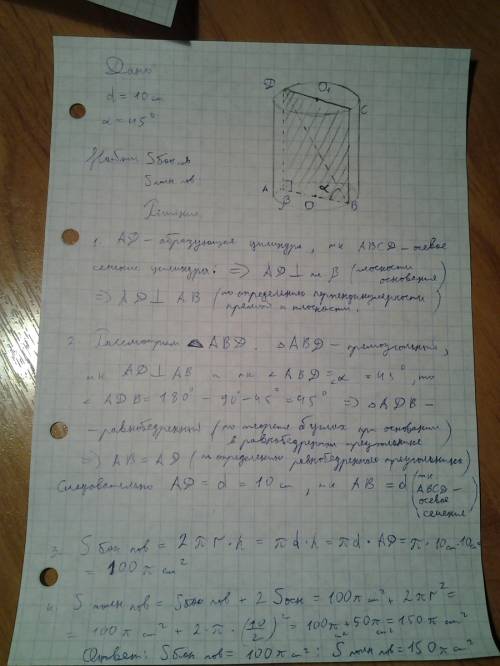 Дано
d = 10 см
α = 45°
Найти Sбок. п
Sполн пов.
Решение
D O₁ C
A β O α B
1. AD – образующая цилиндра, тк ABCD – осевое
сечение цилиндра. ⇒ AD ⊥ пл β (плоскости основания)
⇒ AD ⊥ AB (по определению перпендикулярности прямой и плоскости.)
2. Рассмотрим △ABD. △ABD – прямоугольный,
тк AD ⊥ AB и тк ∠ABD = ∠α = 45°, то
∠ADB = 180° – 90° – 45° = 45° ⇒ △ADB –
– равнобедренный (по теореме о углах при основании в равнобедренном треугольнике)
⇒ AB = AD (по определению равнобедренного треугольника)
Следовательно AD = d = 10 см, тк AB = d (тк ABCD – осевое сечение)
3. Sбок пов = 2πr·h = πd·h = πd·AD = π·10см·10см =
= 100π см²
4. Sполн пов = Sбок пов + 2Sосн = 100π см² + 2πr² =
= 100π см² + 2·π·(10/2)² = 100π см² + 50π см² = 150π см²
Ответ: Sбок пов = 100π см²; Sполн пов = 150π см²